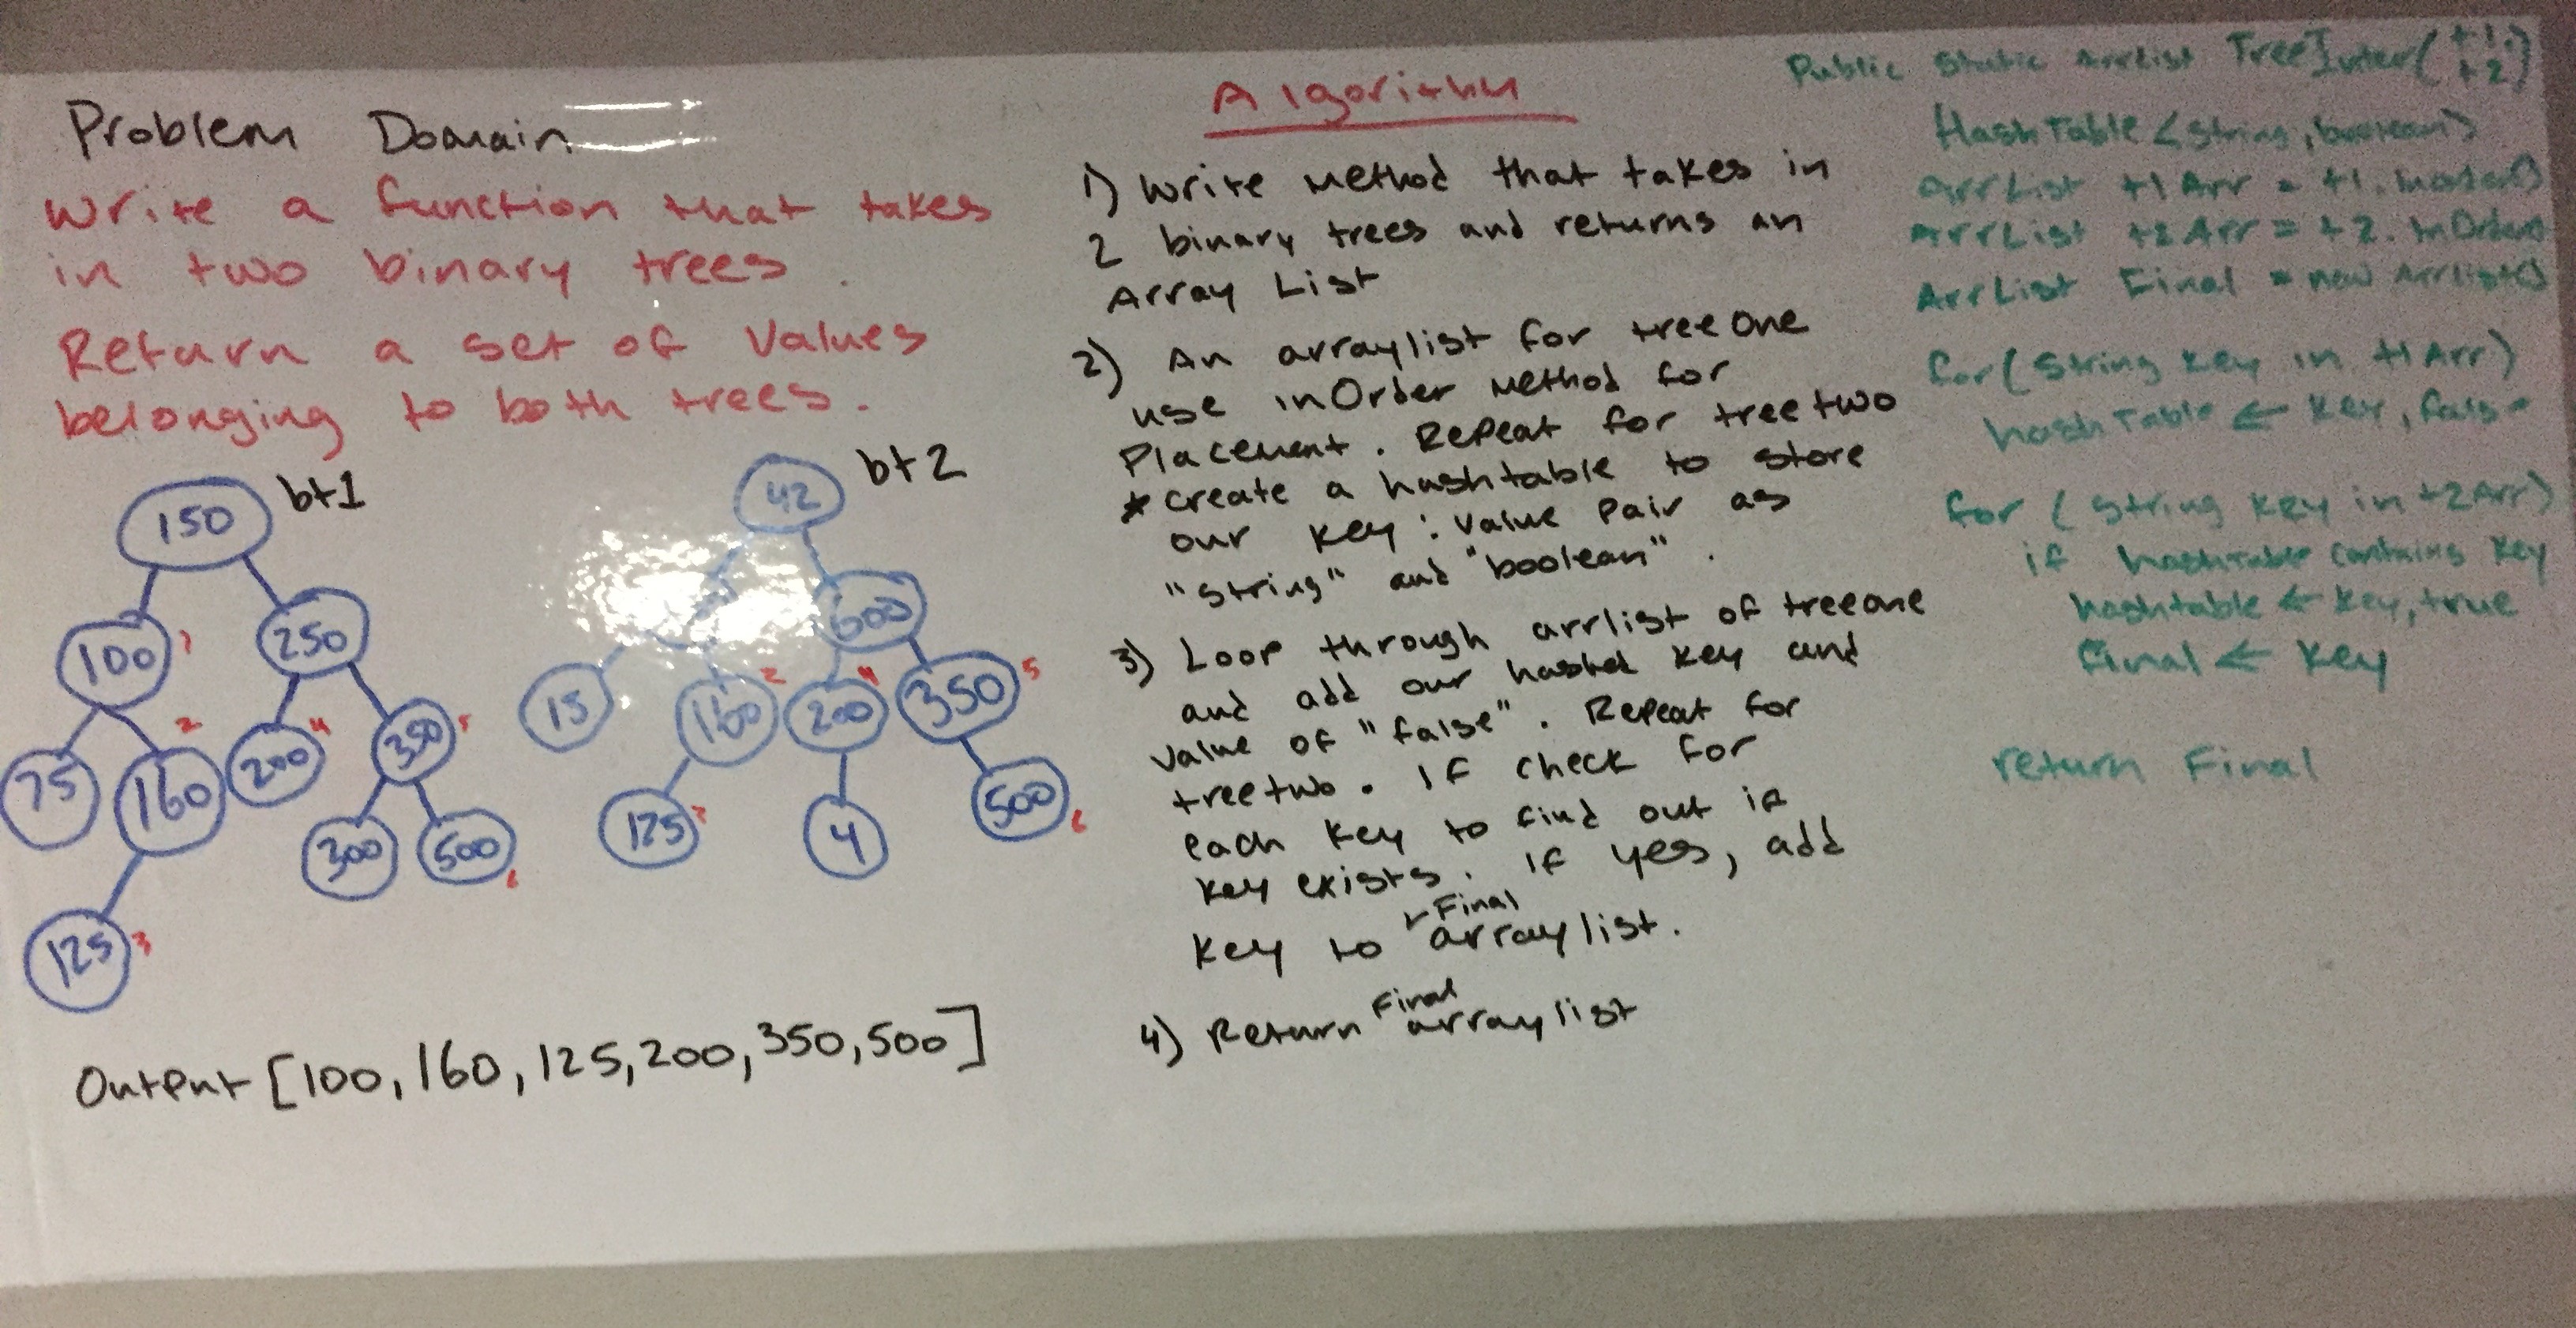 Problem Domain
Write a function that takes
in two binary trees.
Return a set of values
belonging to both trees.
bt1
150
100 1
250
75
160 2
200 4
350 5
300
500 6
125 3
bt2
42
600
15
160 2
200 4
350 5
125 3
4
500 6
Output [100, 160, 125, 200, 350, 500]
Algorithm
1) Write method that takes in
2 binary trees and returns an
Array List
2) An arraylist for tree one
use inOrder method for
Placement. Repeat for tree two
* create a hashtable to store
our key : value pair as
"string" and "boolean".
3) Loop through arrlist of treeone
and add our hashed key and
value of "false". Repeat for
treetwo. If check for
each key to find out if
key exists. If yes, add
Final
key to arraylist.
Final
4) Return arraylist
Public static ArrList TreeInter(t1, t2)
HashTable <string, boolean>
ArrList t1Arr = t1.inOrder()
ArrList t2Arr = t2.InOrder()
ArrList Final = new Arrlist()
for(string key in t1Arr)
hashTable ← key, false
for (string key in t2Arr)
if hashtable contains key
hashtable ← key, true
final ← key
return Final